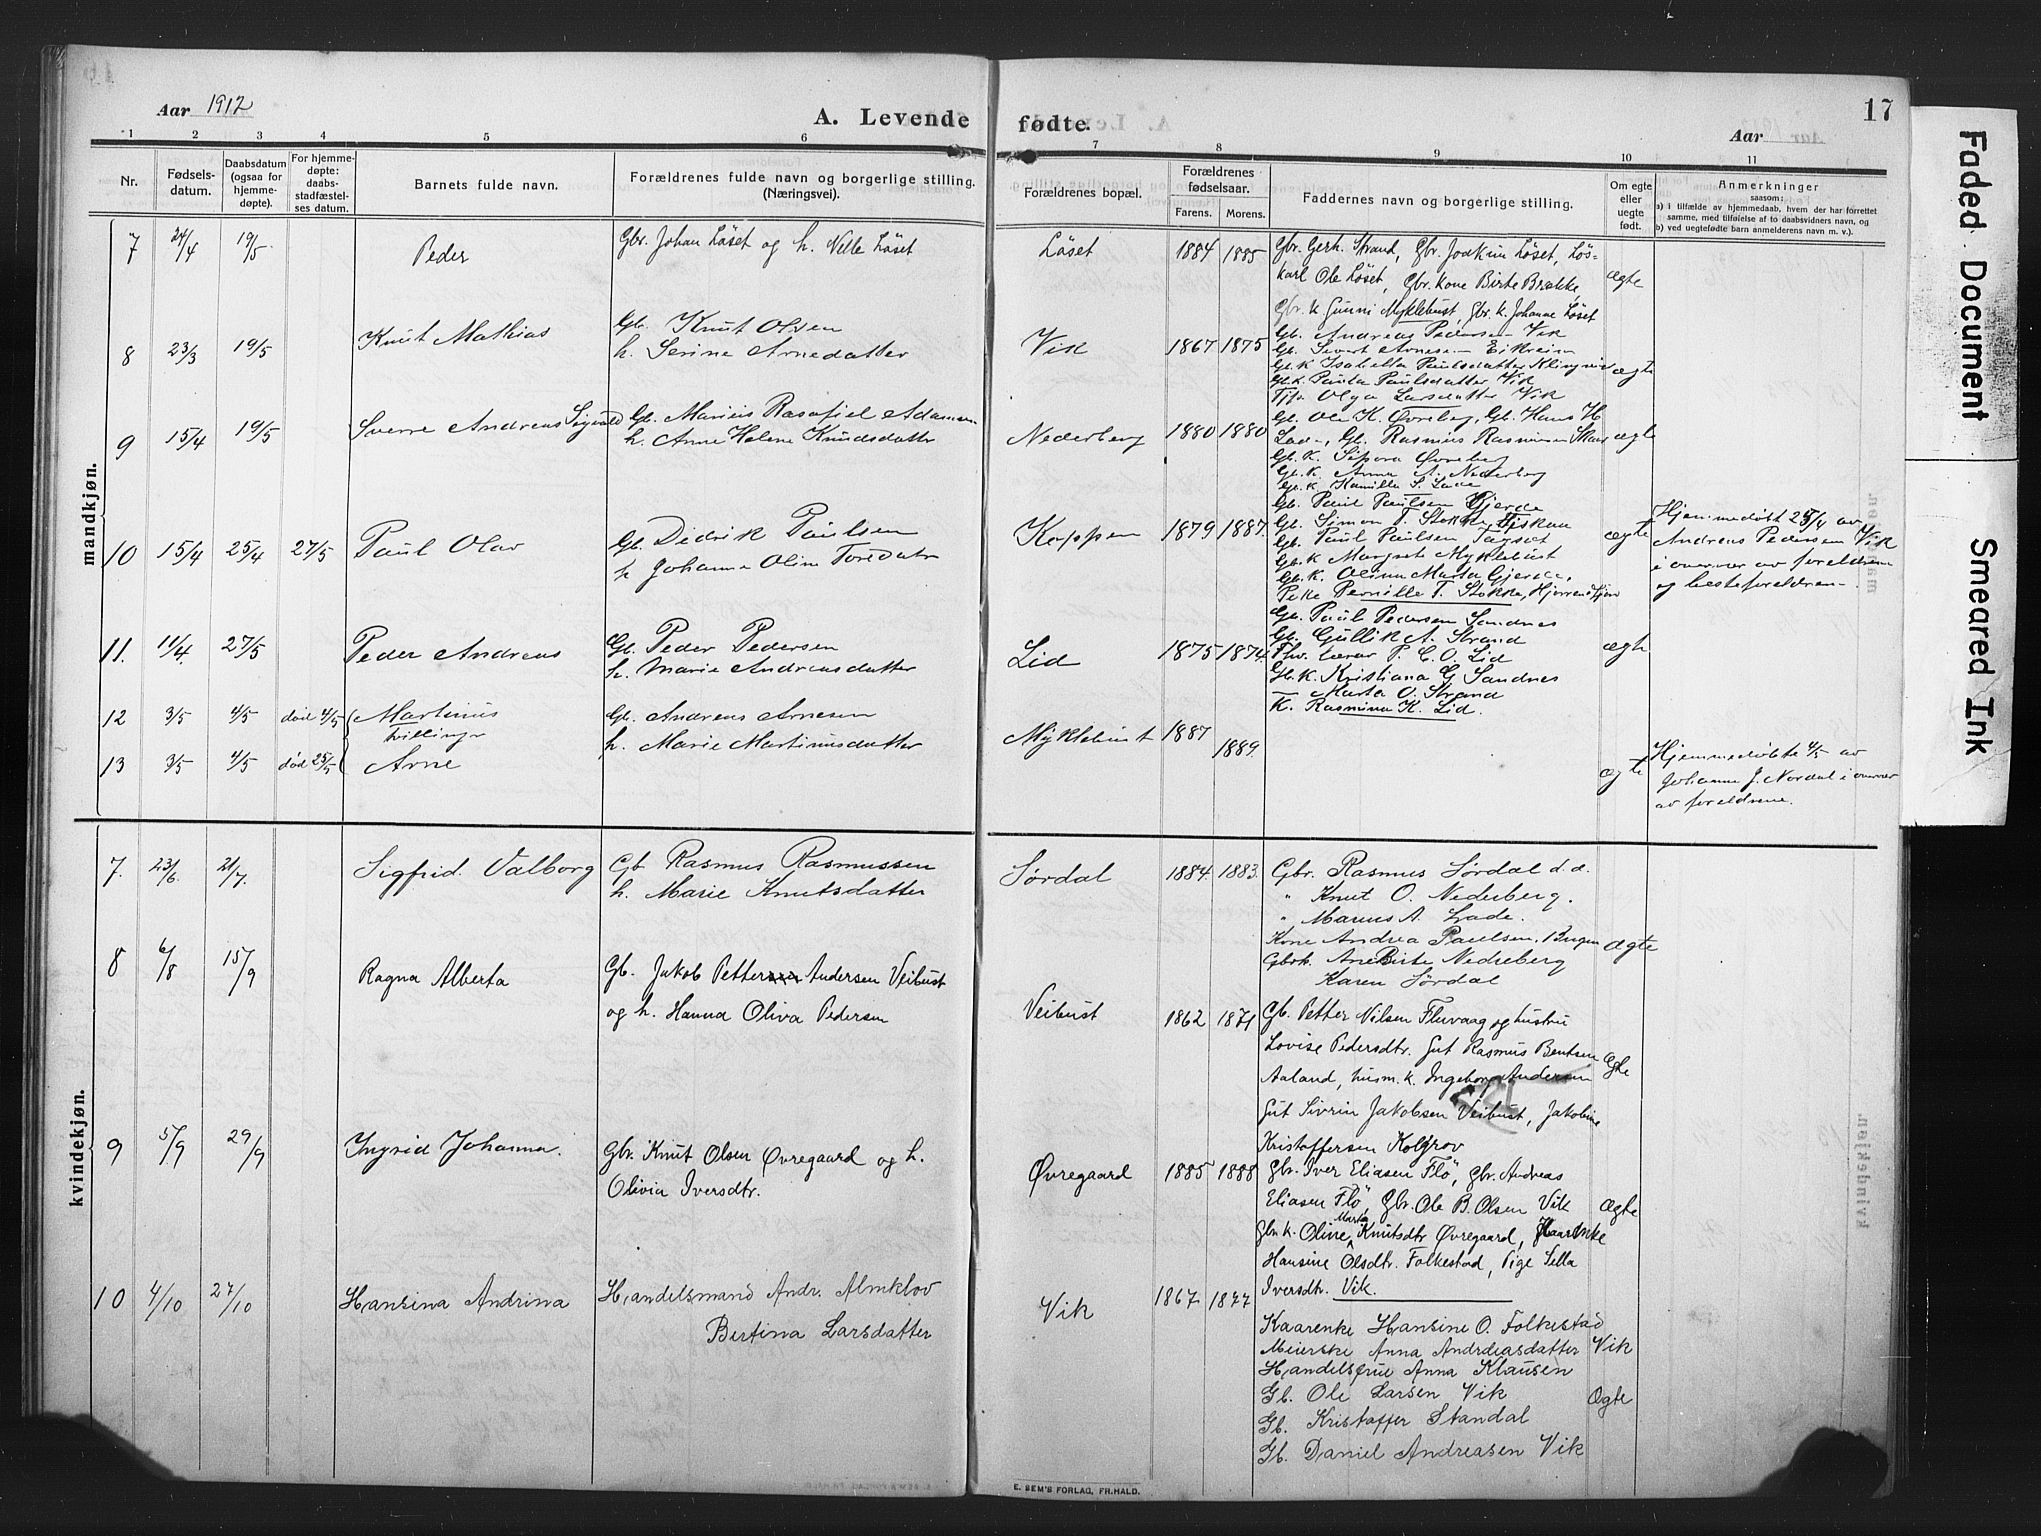 Aar 1912
A. Levende fødte.
17
Aar
1 2 3 4 5 6 7 8 9 10 11
Nr.
Fødsels-
datum.
Daabsdatum
(ogsaa for
hjemme-
døpte).
For hjemme-
døpte:
daabs-
stadfæstel-
ses datum.
Barnets fulde navn.
Forældrenes fulde navn og borgerlige stilling.
(Næringsvei).
Forældrenes bopæl.
Forældrenes
fødselsaar.
Farens. Morens.
Faddernes navn og borgerlige stilling.
Om egte
eller
uegte
født.
Anmerkninger
saasom:
a) i tilfælde av hjemmedaab, hvem der har forrettet
samme, med tilføielse af to daabsvidners navn, og
b) ved uegtefødte barn anmelderens navn m. v.).
mandkjøn.
7 24/4 19/5 Peder
Gbr. Johan Löset og h. Nelle Löset
Löset 1884 1885
Gbr. Gerh. Strand, Gbr. Joakim Löset, Lös-
karl Ole Löset, Gbr. Kone Birte Brække,
Gbr. k. Gunni Myklebust, Gbr. k. Johanne Löset
ægte
8 23/3 19/5 Knut Mathias
Gb. Knut Olsen
h. Serine Arnedatter
Vik 1867 1875
Gb. Andreas Pedersen Vik
Gb. Sivert Arnesen Eikrein
Gb. K Isabella Paulsdatter Klingnes
Gb. K. Paula Paulsdatter Vik
Olga Larsdatter Vik
ægte
9 15/4 19/5 Sverre Andreas Sigvald
Gb. Marius Rasafiel Adamsen
h. Anne Helene Knudsdatter
Nederberg 1880 1880
Gb. Ole K. Øvreberg, Gb. Hans H.
Lade, Gb. Rasmus Rasmussen
Gb. K. Sipora Øvreberg
Gb. K Anna A. Nederberg
Gb. K Kamilla S. Lade
ægte
10 15/4 25/4 27/5 Paul Olav
Gb. Didrik Paulsen
h. Johanne Oline
Koppen 1879 1887.
Gb. Paul Paulsen Gjerde
Gb. Simon T. Stokke,
Gb. Paul Paulsen
Gb. K Margrete Myklebust
Gb. K. Olina Marta Gjerde,
Pike Pernille T. Stokke,
ægte
Hjemmedøbt 25/4 av
Andreas Pedersen Vik
i overvær av foreldrene
og besteforeldrene.
11. 11/4. 27/5 Peder Andreas
Gb. Peder Pedersen
h. Marie Andreasdatter
Lid 1875 1874
Gb. Paul Pedersen Sandnes
Gb. Gullik A. Strand
Lærer P. C. O. Lid
Gb. K. Kristiana G Sandnes
Marta O. Strand
K. Rasmina K. Lid.
ægte
12 3/5 4/5 død 4/5 Martinus
tvillinger
Gb. Andreas Arnesen
h. Marie Martinusdatter
Myklebust 1887 1889.
13 3/5 4/5 død 25/5 Arne
ægte
Hjemmedøbte 4/5 av
Johanne J. Nordal i overvær
av foreldrene.
kvindekjøn.
7. 23/6. 21/7. Sigfrid Valborg
Gb Rasmus Rasmussen
h. Marie Knutsdatter
Sørdal 1884. 1883.
Gbr. Rasmus Sørdal d.æ.
" Knut O. Nederberg.
" Marius A. Lade.
Kone Andrea Paulsen,
Gbrk. Ane Birte Nedreberg
Karen Sørdal
Ægte
8 6/8 15/9 Ragna Alberta
Gb. Jakob Petter Andersen Veibust
og h. Hanna Oliva Pedersen
Veibust 1862 1871
Gb. Petter Nilsen Fluvaag og hustru
Lovise Pedersdtr. Gut Rasmus Bentsen
Aaland, husm. k. Ingeborg Andersen
Gut Sivrin Jakobsen Veibust, Jakobine
Kristoffersen Kolgrov
Ægte
9 5/9 29/9 Ingrid Johanna.
Gbr. Knut Olsen Øvregaard og h.
Olivia Iversdtr.
Øvregaard 1885 1888
Gbr. Iver Eliasen Flö, Gbr. Andreas
Eliasen Flö, Gbr. Ole B. Olsen Vik
Gbr. k. Oline Marta Knutsdtr Øvregaard, Kaarenke
Hansine Olsdtr. Folkestad, Pige Sella
Iversdtr. Vik.
Ægte
10 4/10 27/10 Hansina Andrina
Handelsmand Andr. Almklov
Bertina Larsdatter
Vik 1867 1877
Kaarenke Hansine O. Folkestad
Meierske Anna Andreasdatter Vik
Handelsfrue Anna Klausen
Gb. Ole Larsen Vik
Gb. Kristoffer Standal
Gb. Daniel Andreasen Vik
Ægte
E. SEM'S FORLAG, FR.HALD.
Faded Document
Smeared Ink